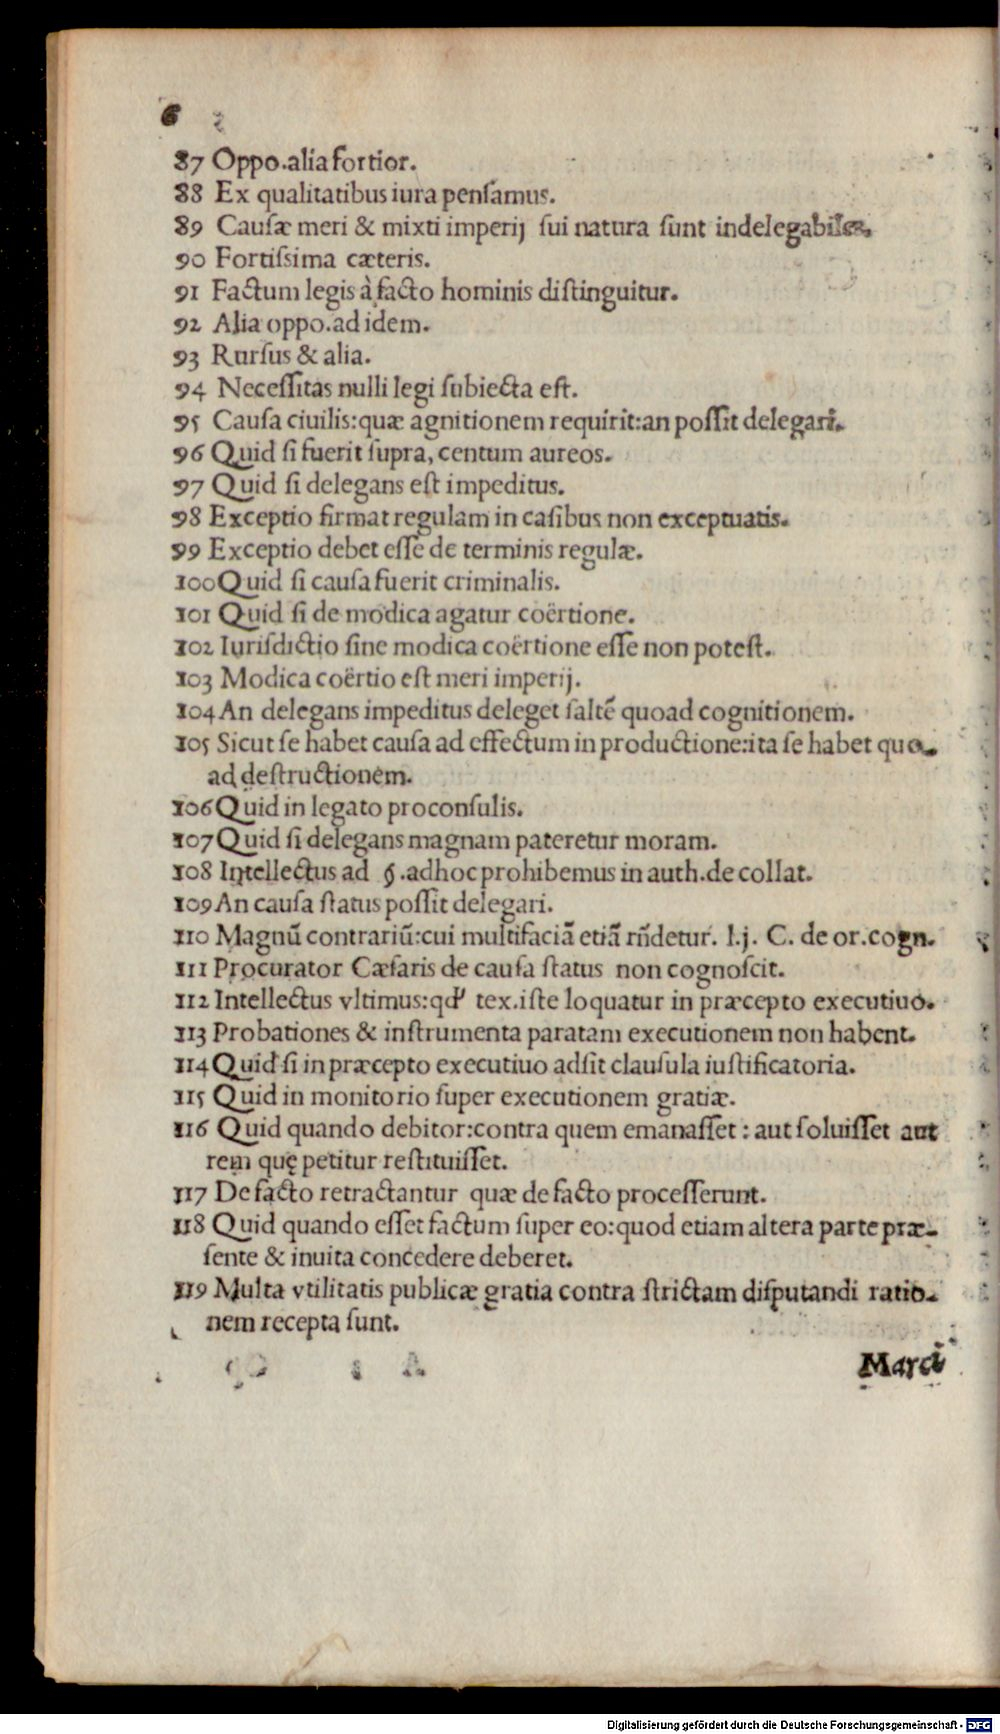 6
87 Oppo.alia fortior.
88 Ex qualitatibus iura pensamus.
89 Causæ meri & mixti imperij sui natura sunt indelegabiles.
90 Fortissima cæteris.
91 Factum legis à facto hominis distinguitur.
92 Alia oppo.ad idem.
93 Rursus & alia.
94 Necessitas nulli legi subiecta est.
95 Causa ciuilis:quæ agnitionem requirit:an possit delegari.
96 Quid si fuerit supra, centum aureos.
97 Quid si delegans est impeditus.
98 Exceptio firmat regulam in casibus non exceptuatis.
99 Exceptio debet esse de terminis regulæ.
100 Quid si causa fuerit criminalis.
101 Quid si de modica agatur coërtione.
102 Iurisdictio sine modica coërtione esse non potest.
103 Modica coërtio est meri imperij.
104 An delegans impeditus deleget saltē quoad cognitionem.
105 Sicut se habet causa ad effectum in productione:ita se habet quo-
ad destructionem.
106 Quid in legato proconsulis.
107 Quid si delegans magnam pateretur moram.
108 Intellectus ad §.adhoc prohibemus in auth.de collat.
109 An causa status possit delegari.
110 Magnū contrariū:cui multifaciā etiā rñdetur. l.j. C. de or.cogn.
111 Procurator Cæsaris de causa status non cognoscit.
112 Intellectus vltimus:qd' tex.iste loquatur in præcepto executiuo.
113 Probationes & instrumenta paratam executionem non habent.
114 Quid si in præcepto executiuo adsit clausula iustificatoria.
115 Quid in monitorio super executionem gratiæ.
116 Quid quando debitor:contra quem emanasset: aut soluisset aut
rem quę petitur restituisset.
117 De facto retractantur quæ de facto processerunt.
118 Quid quando esset factum super eo:quod etiam altera parte præ-
sente & inuita concedere deberet.
119 Multa vtilitatis publicæ gratia contra strictam disputandi ratio-
nem recepta sunt.
Marci
Digitalisierung gefördert durch die Deutsche Forschungsgemeinschaft - DFG